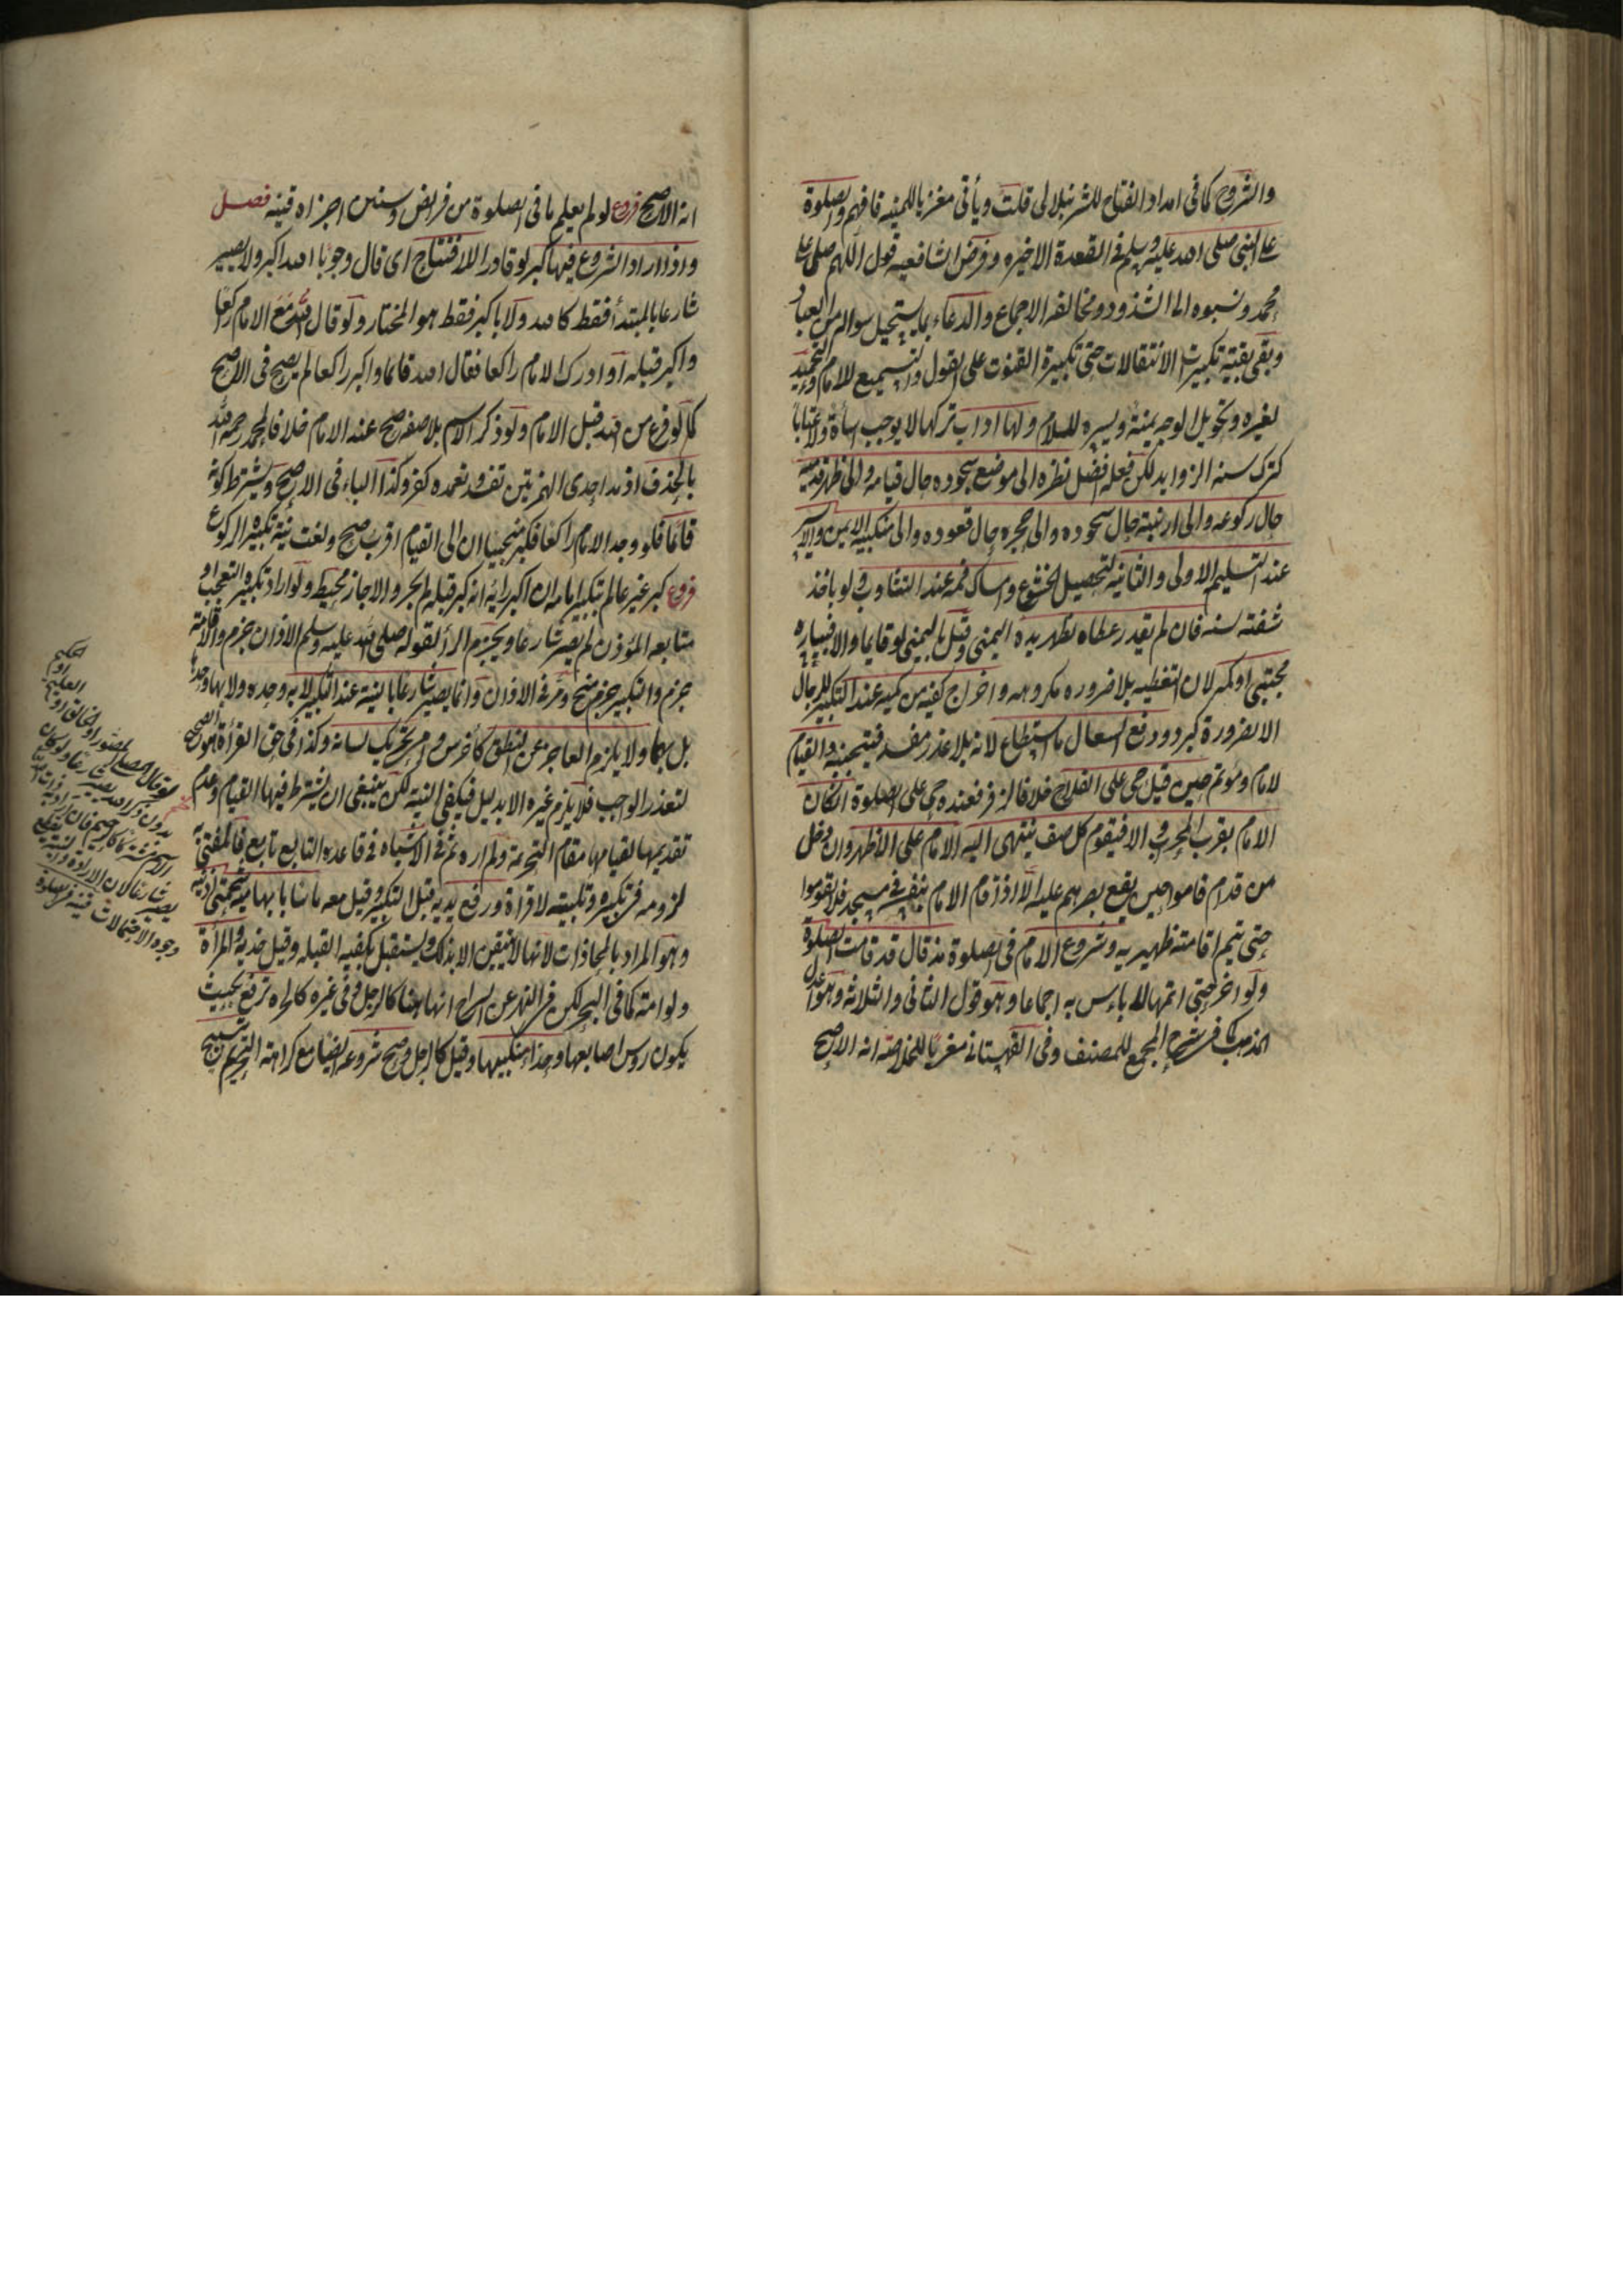 والشروح كما فى امداد الفتاح للشرنبلالى قلت ويأتى معزيا للمنيه فافهم والصلوة
على النبى صلى الله عليه وسلم فى القعدة الاخيره وفرض الشافعيه قول اللهم صلى على
محمد ونسبوه الى الشذوذ ومخالفة الاجماع والدعاء بما يستحيل سواله من العباد
وبقى بقية تكبيرت الانتقالات حتى تكبيرة القنوت على القول والتسميع للامام والتحميد
لغيره وتحويل الوجه يمنة ويسره للسلام ولها اداب تركها لا يوجب اساءة ولا عتابا
كترك سنه الزوايد لكن فعله افضل نظره الى موضع سجوده حال قيامه والى ظهر قدميه
حال ركوعه والى ارنبته حال سجوده والى حجره حال قعوده والى منكبيه الايمن والايسر
عند التسليمه الاولى والثانيه لتحصيل الخشوع وامساك فمه عند التثاوب ولو باخذ
شفته بسنه فان لم يقدر غطاه بظهر يده اليمنى وقيل باليمنى لو قايما والا فبيساره
مجتبى او كمه لان التغطيه بلا ضروره مكروهه واخراج كفيه من كميه عند التكبير للرجال
الا لضرورة كبرد ودفع السعال ما استطاع لانه بلا عذر مفسد فيتجنبه والقيام
لامام ومؤتم حين قيل حى على الفلاح خلافا لزفر فعنده حى على الصلوة ان كان
الامام بقرب المحراب والا فيقوم كل صف ينتهى اليه الامام على الاظهر وان دخل
من قدام قاموا حين يقع بصرهم عليه الا اذا قام الامام بنفسه فى مسجد فلا يقوموا
حتى يتم اقامته ظهيريه وشروع الامام فى الصلوة مذ قال قد قامت الصلوة
ولو اخر حتى اتمها لا باءس به اجماعا وهو قول الثانى والثلاثه وهو اعدل
المذهب كما فى شرح المجمع للمصنف وفى القهستانى معزيا للخلاصه انه الاصح
انه الاصح فروع لو لم يعلم ما فى الصلوة من فرايض وسنن اجزاه قنيه فصل
واذا اراد الشروع فيها كبر لو قادرا للافتتاح اى قال وجوبا الله اكبر ولا يصير
شارعا بالمبتدأ فقط كالله ولا باكبر فقط هو المختار ولو قال الله مع الامام
واكبر قبله او ادرك الامام راكعا فقال الله قائما واكبر راكعا لم يصح فى الاصح
كما لو فرغ من الله قبل الامام ولو ذكر الاسم بلا صفه صح عند الامام خلافا لمحمد رحمه الله
بالحذف اذ مد احدى الهمزتين تفسد وتعمده كفر وكذا الباء فى الاصح ويشترط كونه
قائما فلو وجد الامام راكعا فكبر منحنيا ان الى القيام اقرب صح ولغت نية تكبيره الركوع
فروع كبر غير عالم بتكبير امامه ان اكبر رأيه انه كبر قبله لم يجز والا جاز محيط ولو اراد بتكبيره التعجب او
متابعه المؤذن لم يصر شارعا ويجزم الرأ لقوله صلى الله عليه وسلم الاذان جزم والاقامة
جزم والتكبير جزم منح ومر فى الاذان وانما يصير شارعا بالنية عند التكبير لا به وحده ولا بها وحدها
بل بهما ولا يلزم العاجز عن النطق كأخرس وامى تحريك لسانه وكذا فى حق القرأة هو الصحيح
لتعذر الواجب فلا يلزم غيره الا بدليل فيكفى النية لكن ينبغى ان يشترط فيها القيام وعدم
تقديمها لقيامها مقام التحريمة ولم اره ثم فى الاشباه فى قاعده التابع تابع فالمفتى به
لزومه فى تكبيره وتلبيته لا قراة ورفع يديه قبل التكبير وقيل معه ماسا بابهاميه شحمتى اذنيه
وهو المراد بالمحاذات لانها لا تتيقن الا بذلك ويستقبل بكفيه القبله وقيل خديه والمرأة
ولو امة كما فى البحر لكن فى النهر عن السراج انها هنا كالرجل وفى غيره كالحره ترفع بحيث
يكون روس اصابعها حذاء منكبيها وقيل كالرجل وصح شروعه ايضا مع كراهة التحريم بتسبيح